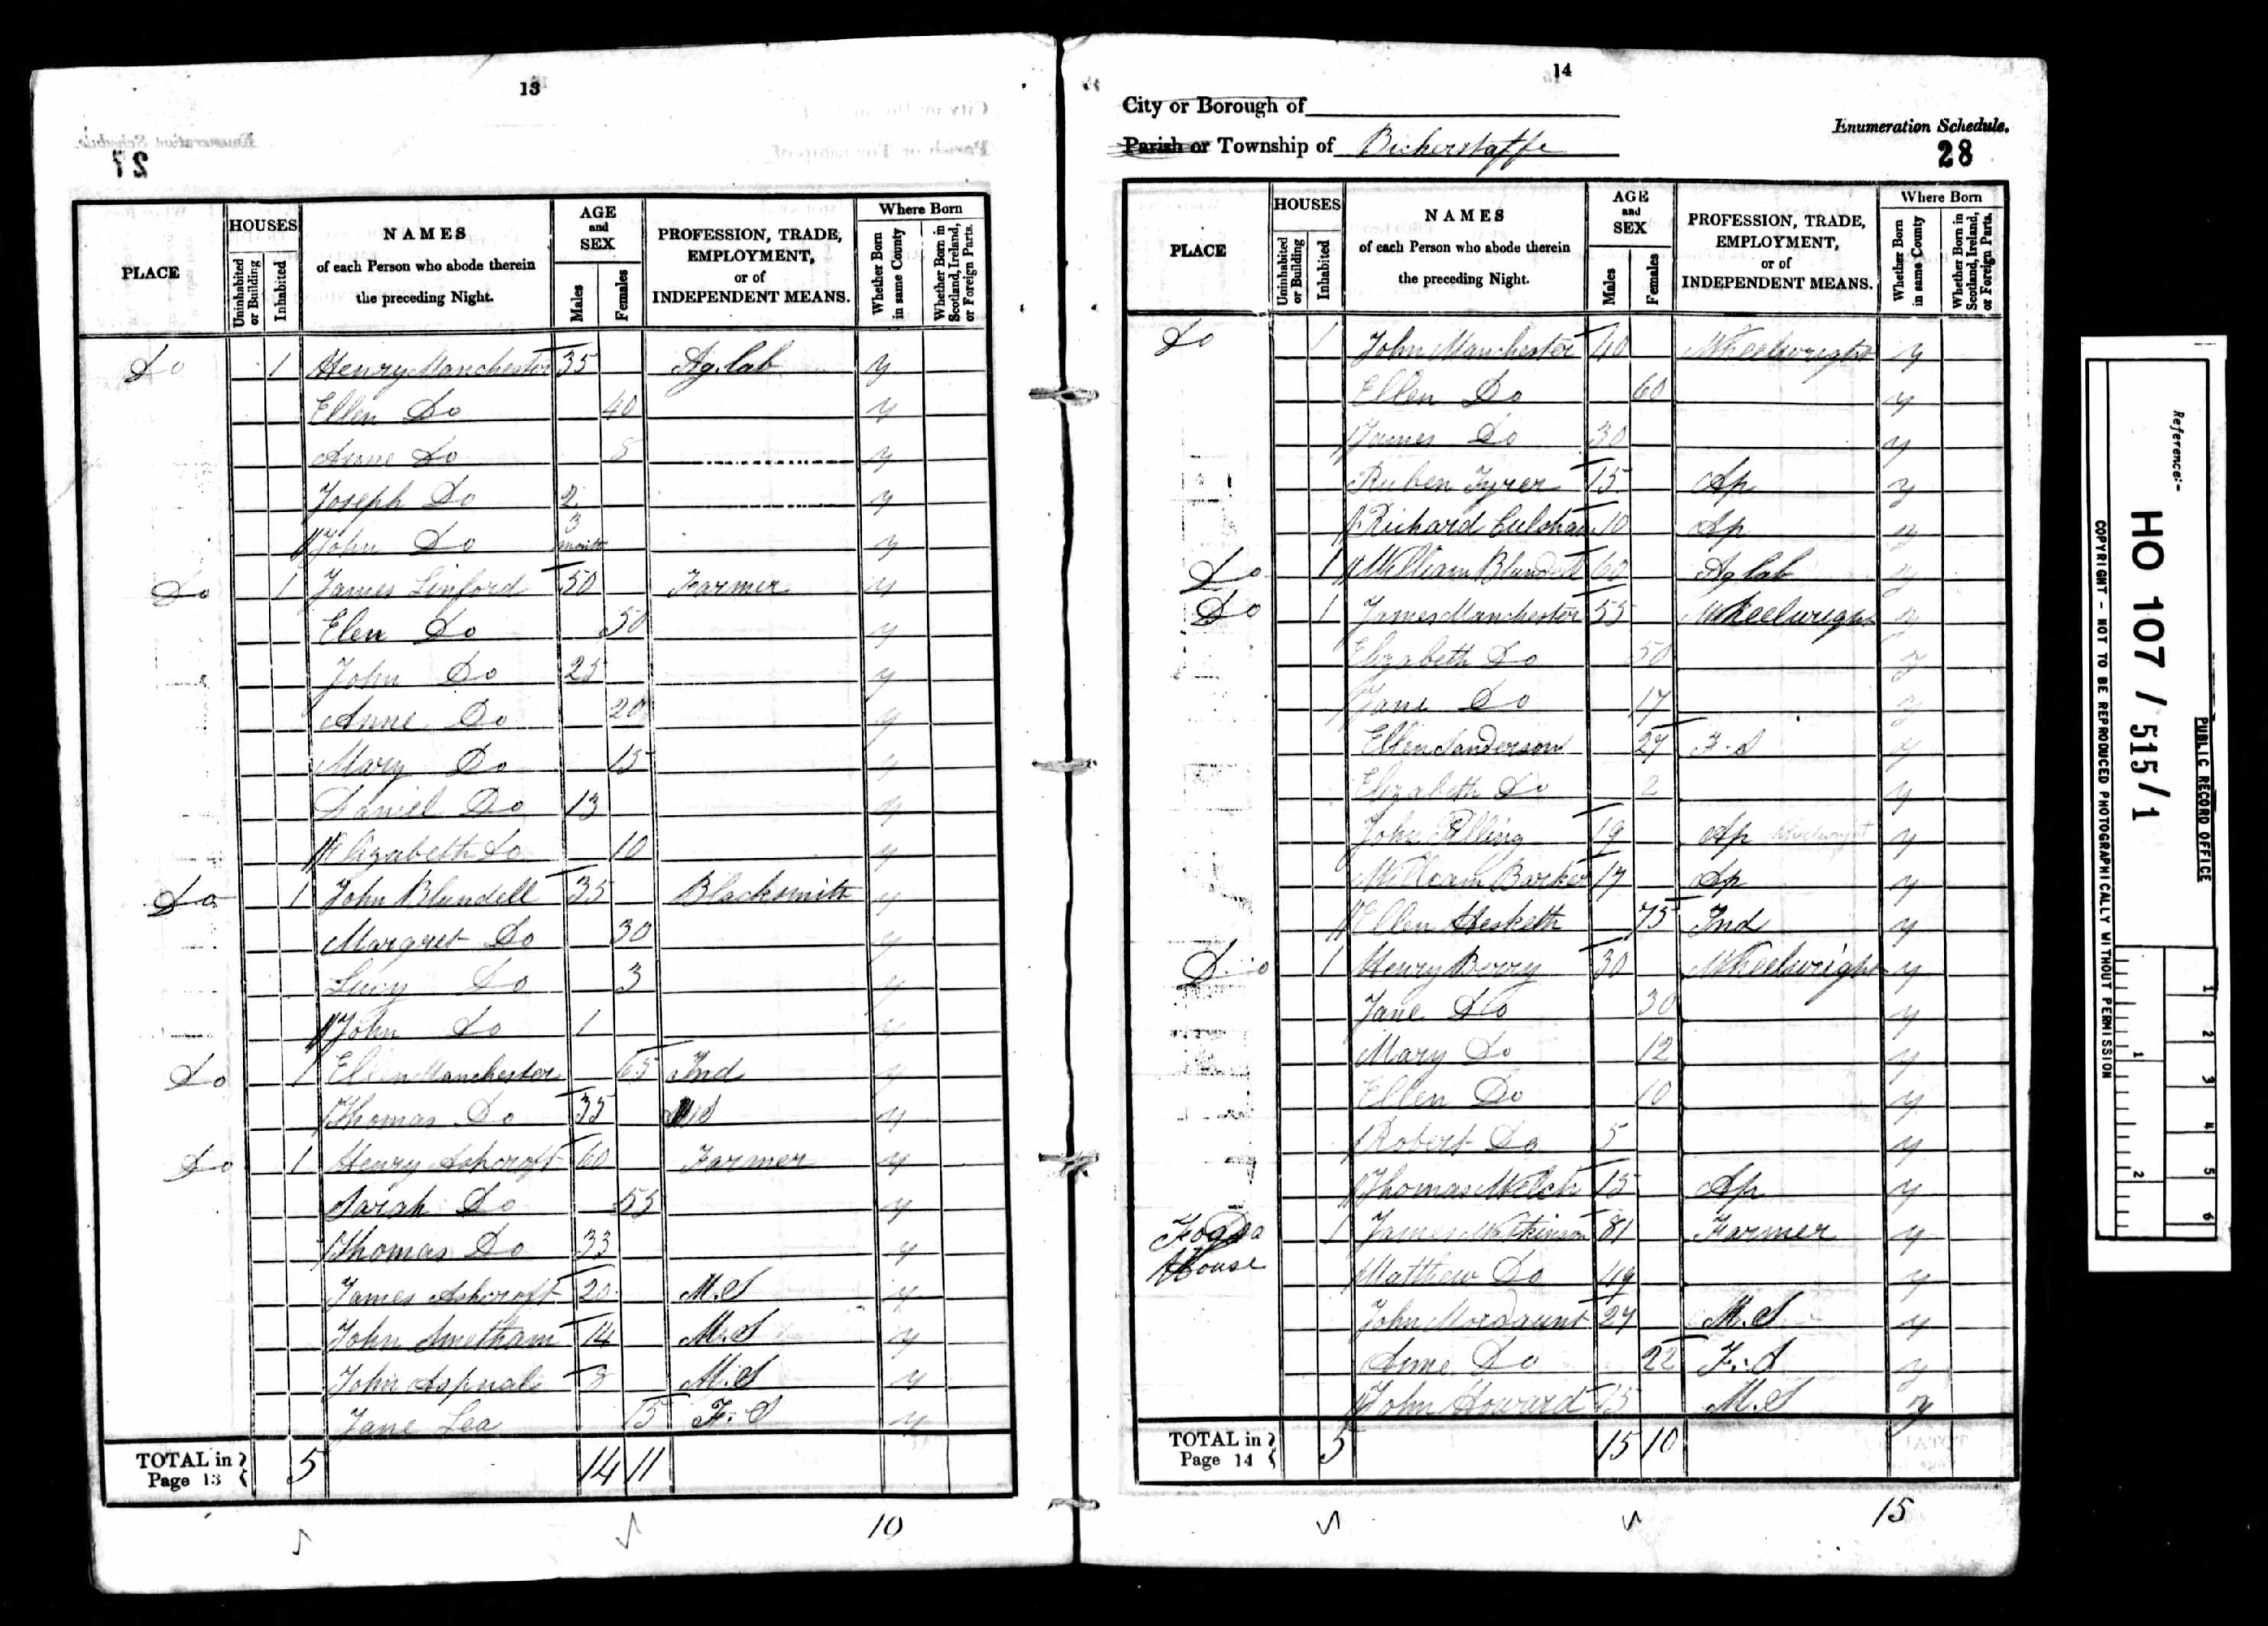 13
27
PLACE
HOUSES
Uninhabited or Building
Inhabited
NAMES
of each Person who abode therein
the preceding Night.
AGE
and
SEX
Males
Females
PROFESSION, TRADE,
EMPLOYMENT,
or of
INDEPENDENT MEANS.
Where Born
Whether Born in same County
Whether Born in Scotland, Ireland, or Foreign Parts.
Do 1 Henry Manchester 35 Ag. lab y
Ellen Do 40 y
Anne Do 5 y
Joseph Do 2 y
John Do 3 months y
Do 1 James Linford 50 Farmer y
Elen Do 50 y
John Do 25 y
Anne Do 20 y
Mary Do 15 y
Daniel Do 13 y
Elizabeth Do 10 y
Do 1 John Blundell 35 Blacksmith y
Margret Do 30 y
Lucy Do 3 y
John Do 1 y
Do 1 Ellen Manchester 65 Ind y
Thomas Do 35 M S y
Do 1 Henry Ashcroft 60 Farmer y
Sarah Do 55 y
Thomas Do 33 y
James Ashcroft 20 M.S y
John Smetham 14 M.S y
John Aspnal 8 M.S y
Jane Lea 15 F.S y
TOTAL in Page 13 5 14 11
10
14
City or Borough of
Parish or Township of Bickerstaffe
Enumeration Schedule.
28
PLACE
HOUSES
Uninhabited or Building
Inhabited
NAMES
of each Person who abode therein
the preceding Night.
AGE
and
SEX
Males
Females
PROFESSION, TRADE,
EMPLOYMENT,
or of
INDEPENDENT MEANS.
Where Born
Whether Born in same County
Whether Born in Scotland, Ireland, or Foreign Parts.
Do 1 John Manchester 40 Wheelwright y
Ellen Do 60 y
James Do 30 y
Ruben Tyrer 15 Ap y
Richard Culshaw 10 Ap y
Do 1 William Blundell 60 Ag lab y
Do 1 James Manchester 55 Wheelwright y
Elizabeth Do 50 y
Jane Do 17 y
Ellen Sanderson 27 F.S y
Elizabeth Do 2 y
John Pilling 19 Ap Wheelwright y
William Barker 17 Ap y
Ellen Hesketh 75 Ind y
Do 1 Henry Berry 30 Wheelwright y
Jane Do 30 y
Mary Do 12 y
Ellen Do 10 y
Robert Do 5 y
Thomas Welch 15 Ap y
1 James Watkinson 81 Farmer y
House Matthew Do 49 y
John Mordaunt 27 M.S y
Anne Do 22 F.S y
John Howard 15 M.S y
TOTAL in Page 14 5 15 10
15
Reference:-
HO 107 / 515/1
PUBLIC RECORD OFFICE
COPYRIGHT - NOT TO BE REPRODUCED PHOTOGRAPHICALLY WITHOUT PERMISSION
1 2 3 4 5 6
1 2